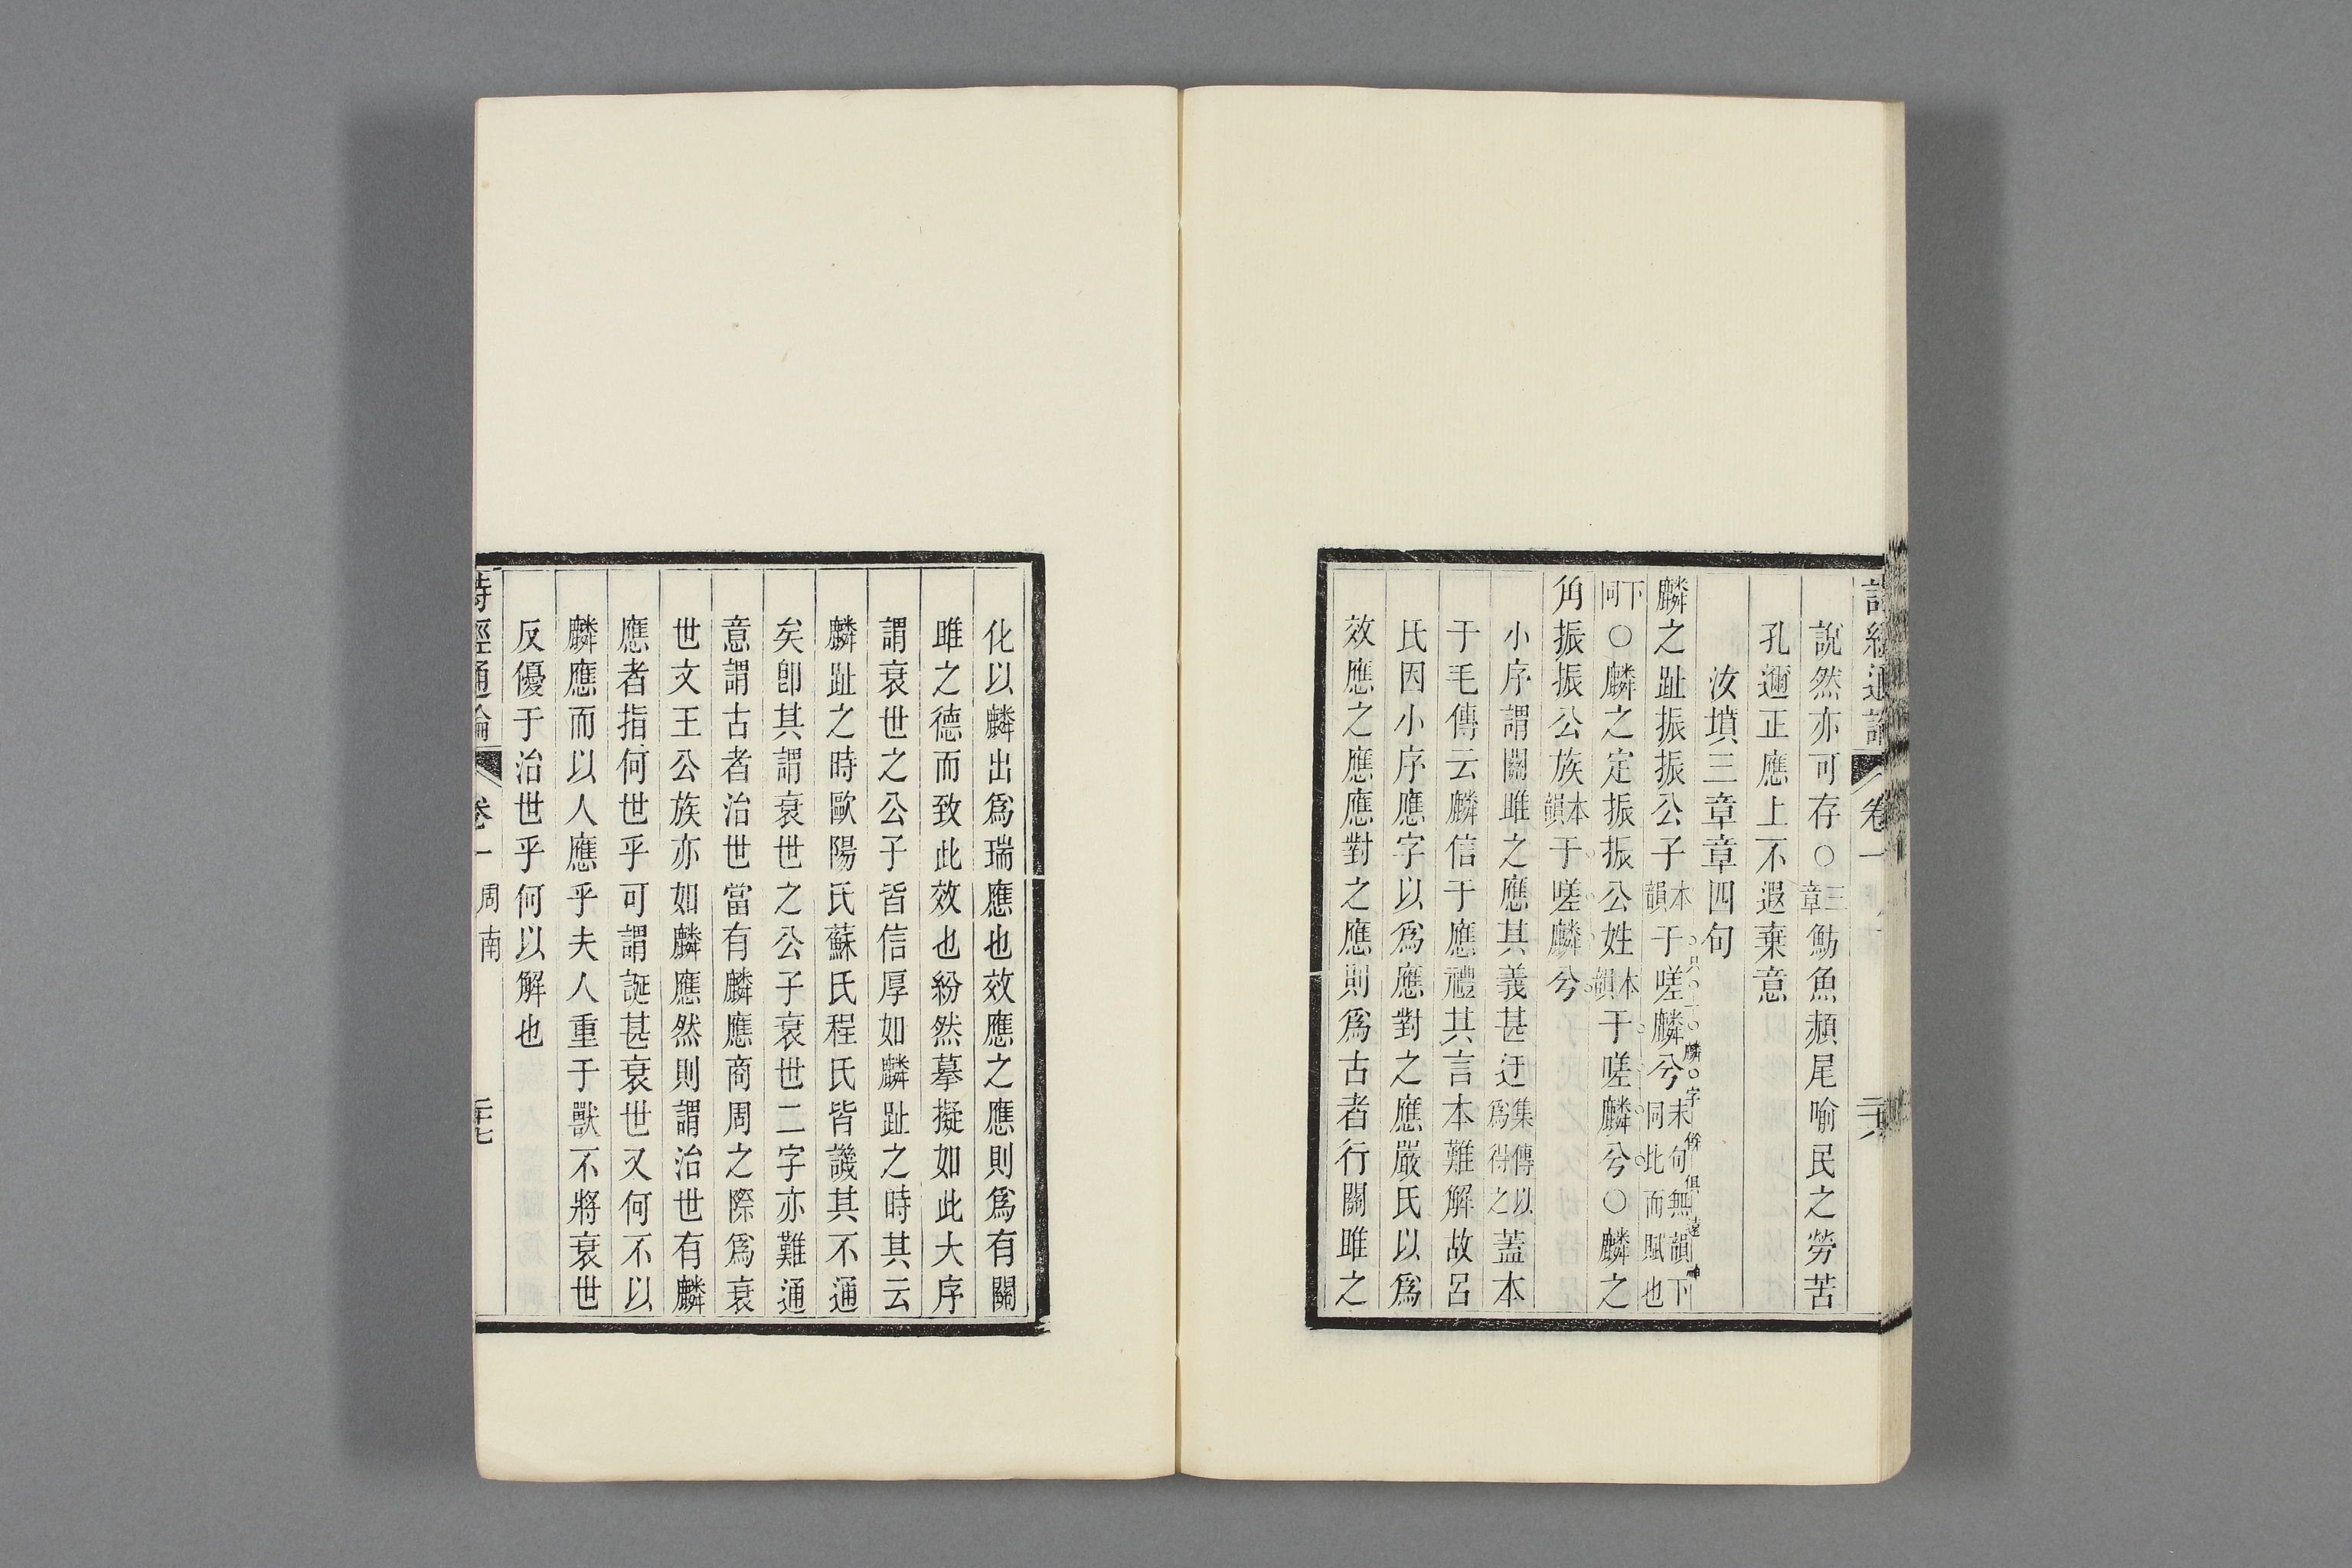 詩經通論 卷一
說然亦可存○三章魴魚頳尾喻民之勞苦
孔邇正應上不遐棄意
汝墳三章章四句
麟之趾振振公子本韻于嗟麟兮末句無韻下同此而賦也
只一麟字餘俱遠神
下同○麟之定振振公姓本韻于嗟麟兮○麟之
角振振公族本韻于嗟麟兮
小序謂關雎之應其義甚迂集傳以爲得之蓋本
于毛傳云麟信于應禮其言本難解故呂
氏因小序應字以爲應對之應嚴氏以爲
效應之應應對之應則爲古者行關雎之
化以麟出爲瑞應也效應之應則爲有關
雎之德而致此效也紛然摹擬如此大序
謂衰世之公子皆信厚如麟趾之時其云
麟趾之時歐陽氏蘇氏程氏皆譏其不通
矣卽其謂衰世之公子衰世二字亦難通
意謂古者治世當有麟應商周之際爲衰
世文王公族亦如麟應然則謂治世有麟
應者指何世乎可謂誕甚衰世又何不以
麟應而以人應乎夫人重于獸不將衰世
反優于治世乎何以解也
詩經通論 卷一 周南 二十七